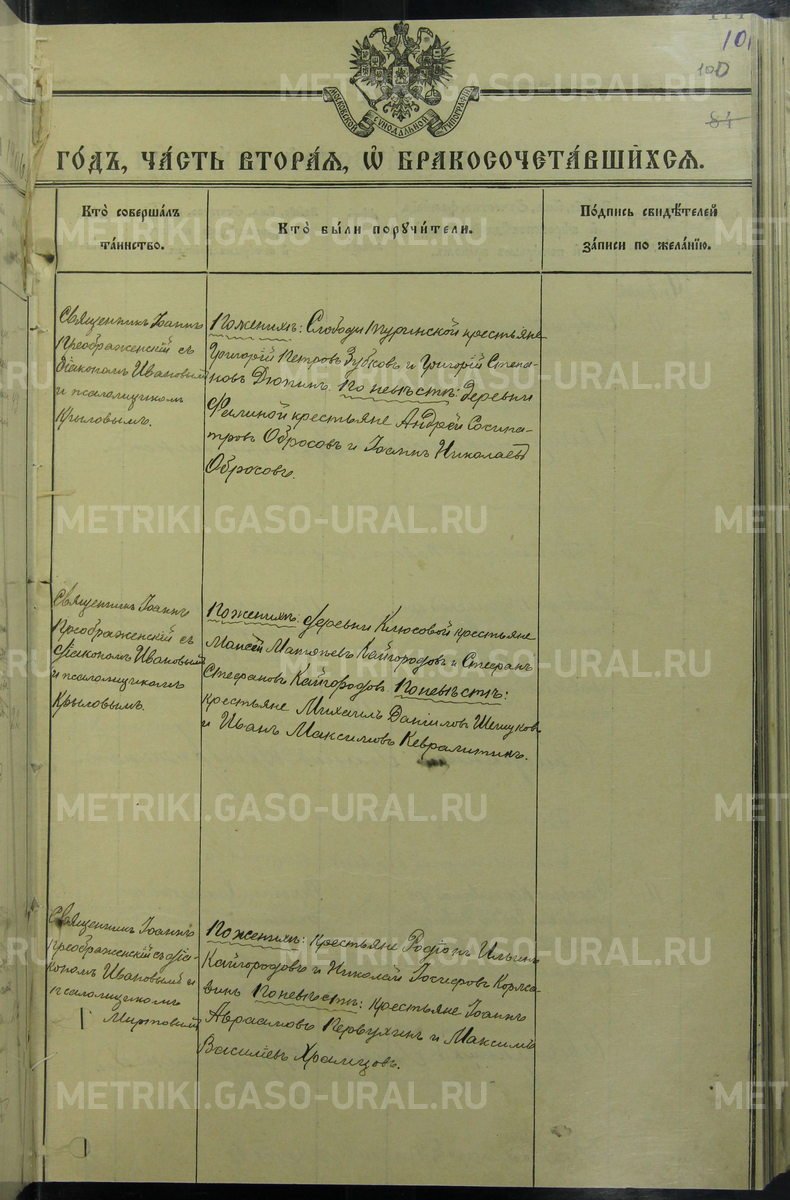 10
100
84
МОСКОВСКОЙ СѴНОДАЛЬНОЙ ТИПОГРАФІИ
ГО́ДЪ, ЧА́СТЬ ВТОРА́Я, Ѽ БРАКОСОЧЕТА́ВШИХСЯ.
Кто̀ соверша́лъ
та́инство.
Кто̀ бы́ли поручи́тели.
По́дпись свидѣ́телей
за́писи по жела́нїю.
Священникъ Іоаннъ
Преображенскій съ
діакономъ Ивановымъ
и псаломщикомъ
Крыловымъ.
По женихѣ: Слободы Туринской крестьяне
Григорій Петровъ Зубковъ и Григорій Степа-
новъ Дюпинъ. По невѣстѣ: деревни
Фалиной крестьяне Андрей Сосипа-
тровъ Обросовъ и Іоаннъ Николаевъ
Обросовъ.
Священникъ Іоаннъ
Преображенскій съ
діакономъ Ивановымъ
и псаломщикомъ
Крыловымъ.
По женихѣ: деревни Клюсовой крестьяне
Матѳеевъ Кайгородовъ и Стефанъ
Стефановъ Кайгородовъ. По невѣстѣ:
крестьяне Михаилъ Даніиловъ Шешуковъ
и Иванъ Максимовъ
Священникъ Іоаннъ
Преображенскій съ діа-
кономъ Ивановымъ и
псаломщикомъ
По женихѣ: крестьяне Родіонъ Ильинъ
Кайгородовъ и Николай Іосифовъ Корлса-
винъ По невѣстѣ: крестьяне Іоаннъ
Аврамовъ Первухинъ и Максимъ
Василіевъ Храмцовъ.
METRIKI.GASO-URAL.RU